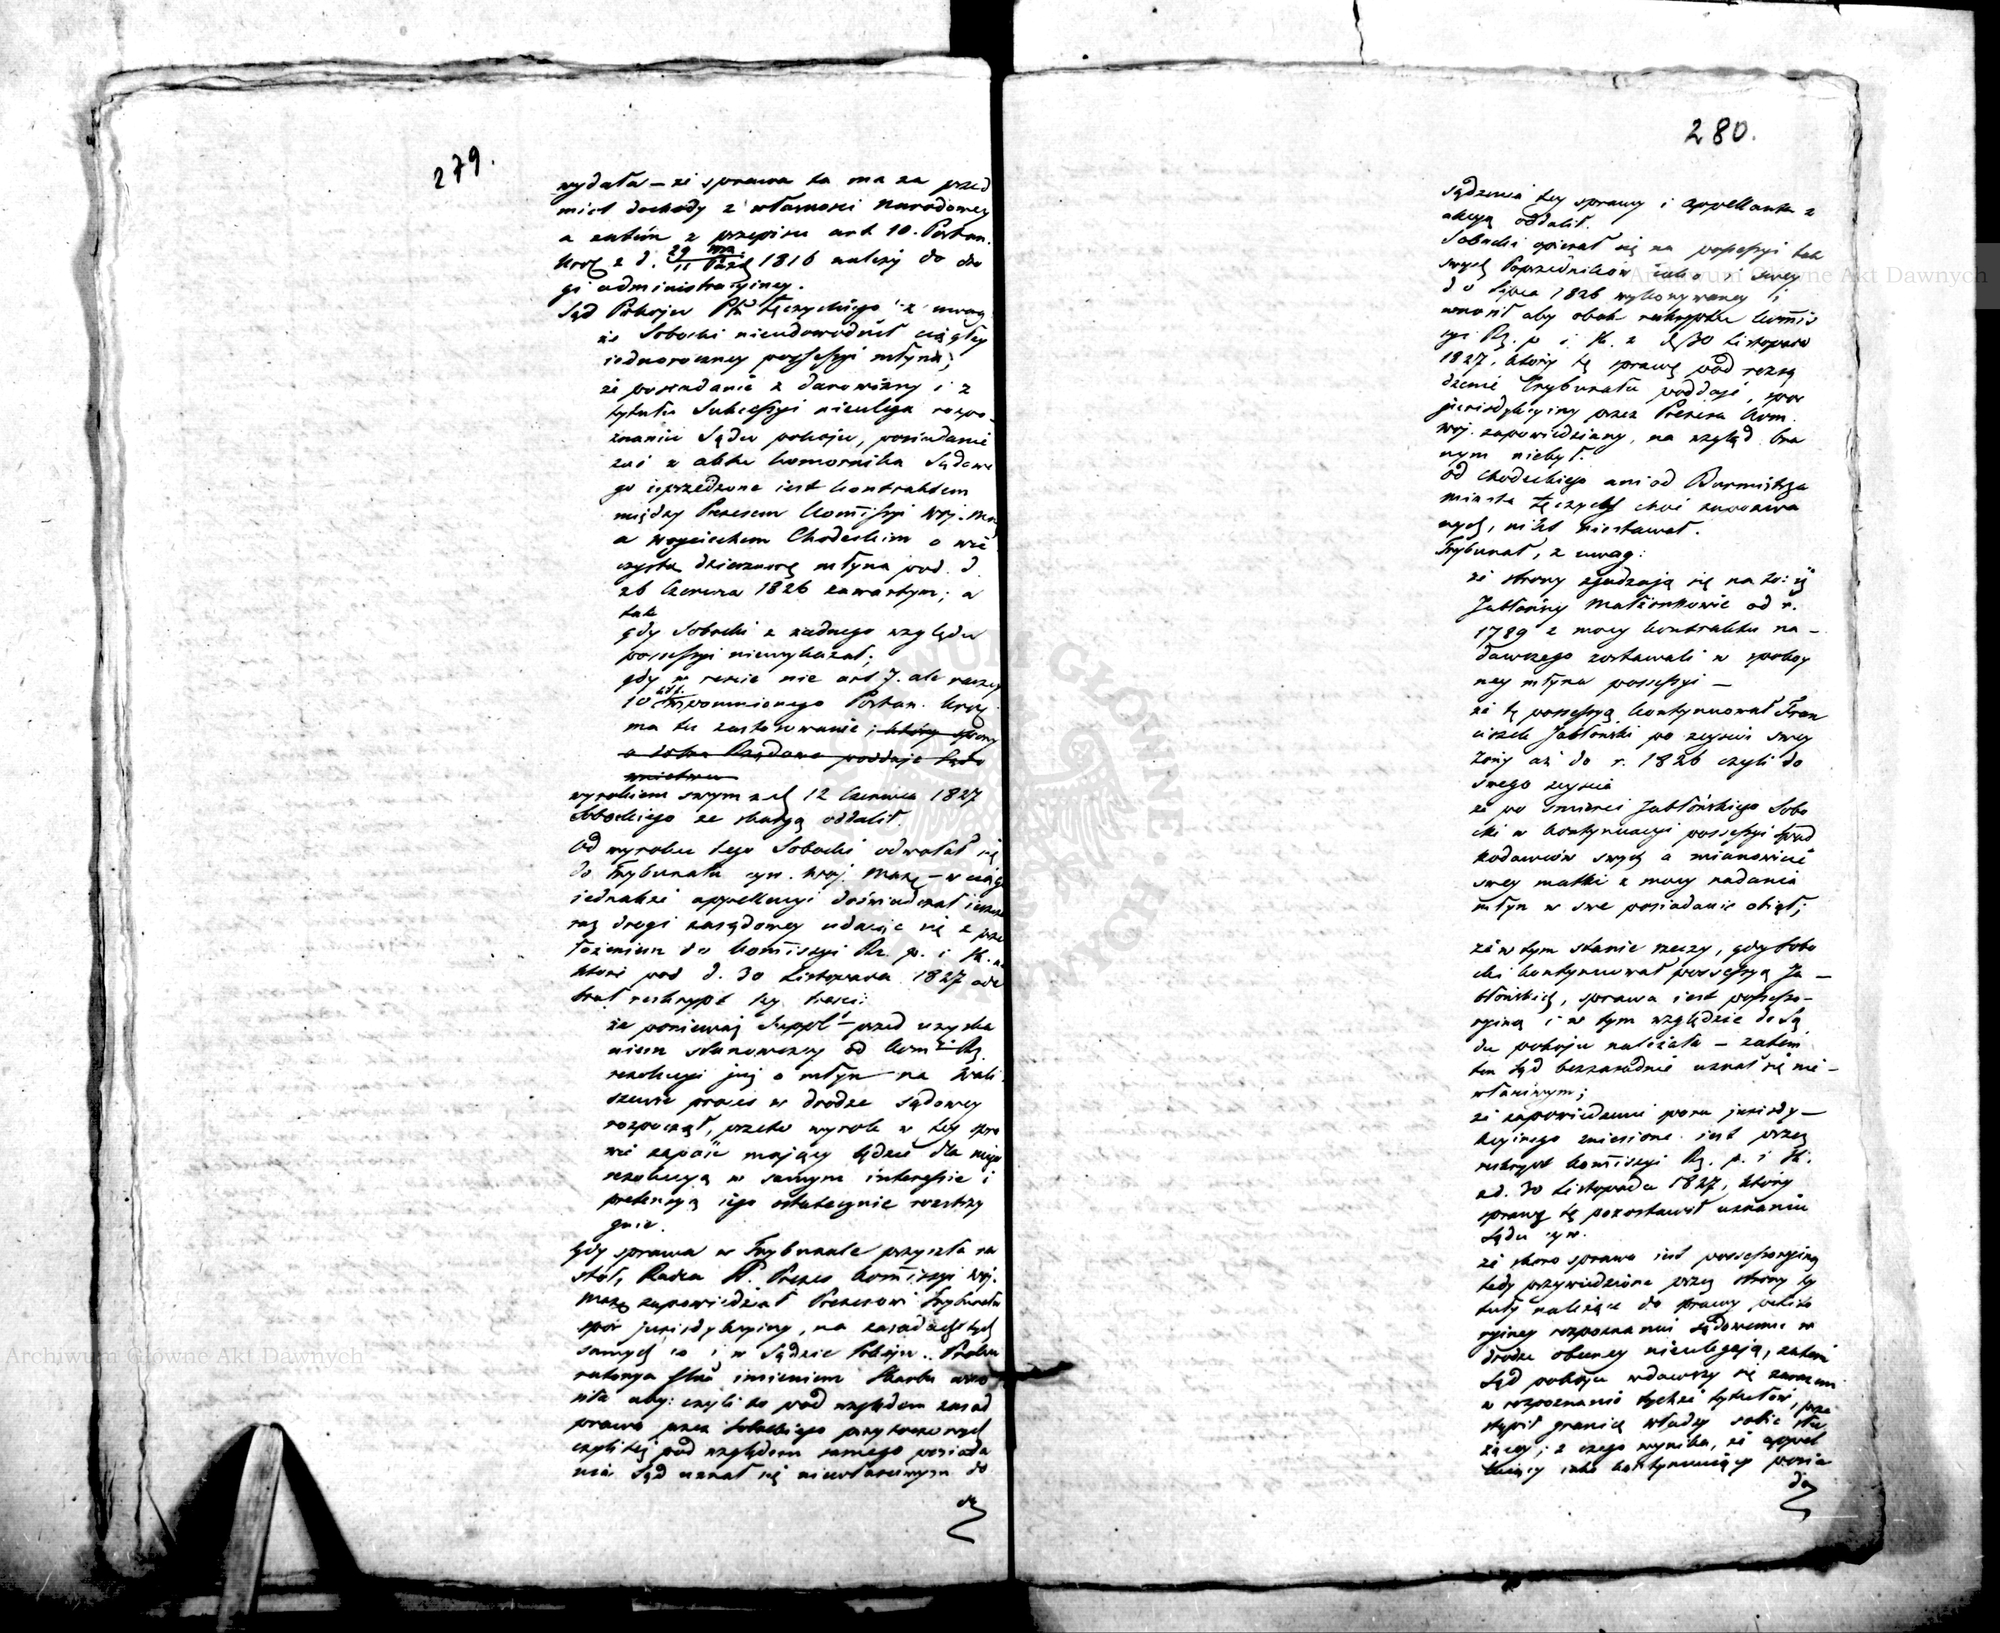 279.
wydała – że sprawa ta ma za przed
miot dochody z własności Narodowey
a zatém z przepisu art 10. Postan.
Król z d. 29 Wrz / 11 Paźd 1816 należy do dro
gi administracyiney.
Sąd Pokoju Ptu Łęczyckiego z uwag
że Sobocki nieudowodnił ciągłey
iednoroczney possessyi młyna;
że posiadanie z darowizny i z
tytułu Sukcessyi nieulega rozpo-
znaniu Sądu pokoju, posiadanie
zaś z aktu komornika Sądowe
go uprzedzone iest kontraktem
między Prezesem Kommissyi Woj. Maz
a Woyciechem Chodeckim o wie
czystą dzierzawę młyna pod. d.
26 Czerwca 1826 zawartym; a
tak
gdy Sobocki z żadnego względu
possessyi niewykazał;
gdy w rzeczie nie art 7. ale raczey
10 wspomnionego Postan. Król
ma tu zastosowanie; który spory
o dobra Rządowe poddaje Sądo
wnictwu
wyrokiem swym z d 12 Czerwca 1827
Sobockiego ze skargą oddalił.
Od wyroku tego Sobocki odwołał się
do Trybunału cyw. Woj. Maz – w ciągu
jednakże appellacyi doświadczał ieszcze
raz drogi zasądowey udając się z prze
łożeniem do Kommissyi Rz. p. i Sk. na
które pod d. 30 Listopada 1827 ode
brał reskrypt tey treści:
że ponieważ Suppl – przed uzyska
niem stanowczey od Kom Rz.
rezolucyi już o młyn na Wali
szewie proces w drodze sądowey
rozpoczął, przeto wyrok w tey spra
wie zapaść mający będzie dla niego
rezolucyą w samym interessie i
pretensyą iego ostatecznie rozstrzy
gnie.
Gdy sprawa w Trybunale przyszła na
stół, Radca St. Prezes Kommissyi Woj.
Maz zapowiedział Prezesowi Trybunału
spór jurisdykcyiny, na zasadach tych
samych co i w Sądzie Pokoju. Proku
ratorya zaś imieniem Skarbu wno
siła aby: czyli to pod względem zasad
prawa przez Sobockiego przytoczonych
czyli też pod względem samego posiada
nia Sąd uznał się niewłaściwym do
są
280.
sądzenia tey sprawy i appellanta z
akcyą oddalił.
Sobocki opierał się na possessyi tak
swych Poprzedników iako i swey
do Lipca 1826 wykonywaney i
wnosił aby obok reskryptu Kommis
syi Rz. p. i. Sk. z d 30 Listopada
1827. który tę sprawę pod rozsą
dzenie Trybunału poddaje, spór
jurisdykcyiny przez Prezesa Kom.
Woj. zapowiedziany, na wzgląd bra
nym niebył.
Od Chodeckiego ani od Burmistrza
miasta Łęczycy choć zapozwa
nych, nikt niestawał.
Trybunał, z uwag:
że strony zgadzają się na to: iż
Jabłońscy Małżonkowie od r.
1789 z mocy kontraktu na-
dawczego zostawali w spokoy
ney młyna possessyi –
że tę possessyą kontynuował Fran
ciszek Jabłoński po zeyściu swey
żony aż do r. 1826 czyli do
swego zeyścia
że po śmierci Jabłońskiego Sobo
cki w kontynuacyi possessyi spad
kodawców swych a mianowicie
swey matki z mocy nadania
młyn w swe posiadanie obiął;
że w tym stanie rzeczy, gdy Sobo
cki kontynuował possessyą Ja-
błońskich, sprawa iest possesso-
ryiną i w tym względzie do Są
du pokoju należała – zatem
ten Sąd bezzasadnie uznał się nie-
właściwym;
że zapowiedzenie sporu jurisdy-
kcyinego zniesione iest przez
reskrypt Kommissyi Rz. p. i Sk.
z d. 30 Listopada 1827, który
sprawę tę pozostawił uznaniu
Sądu cyw.
że skoro sprawa iest possessoryiną
tedy przywiedzione przez strony ty
tuły należące do sprawy petito
ryiney rozpoznaniu Sądowemu w
drodze obecney nieulegają, zatém
Sąd pokoju wdawszy się zarazem
w rozpoznanie tychże tytułów, prze
stąpił granice władzy sobie słu
żącey; z czego wynika, że appel
lujący iako kontynuujący posia
da